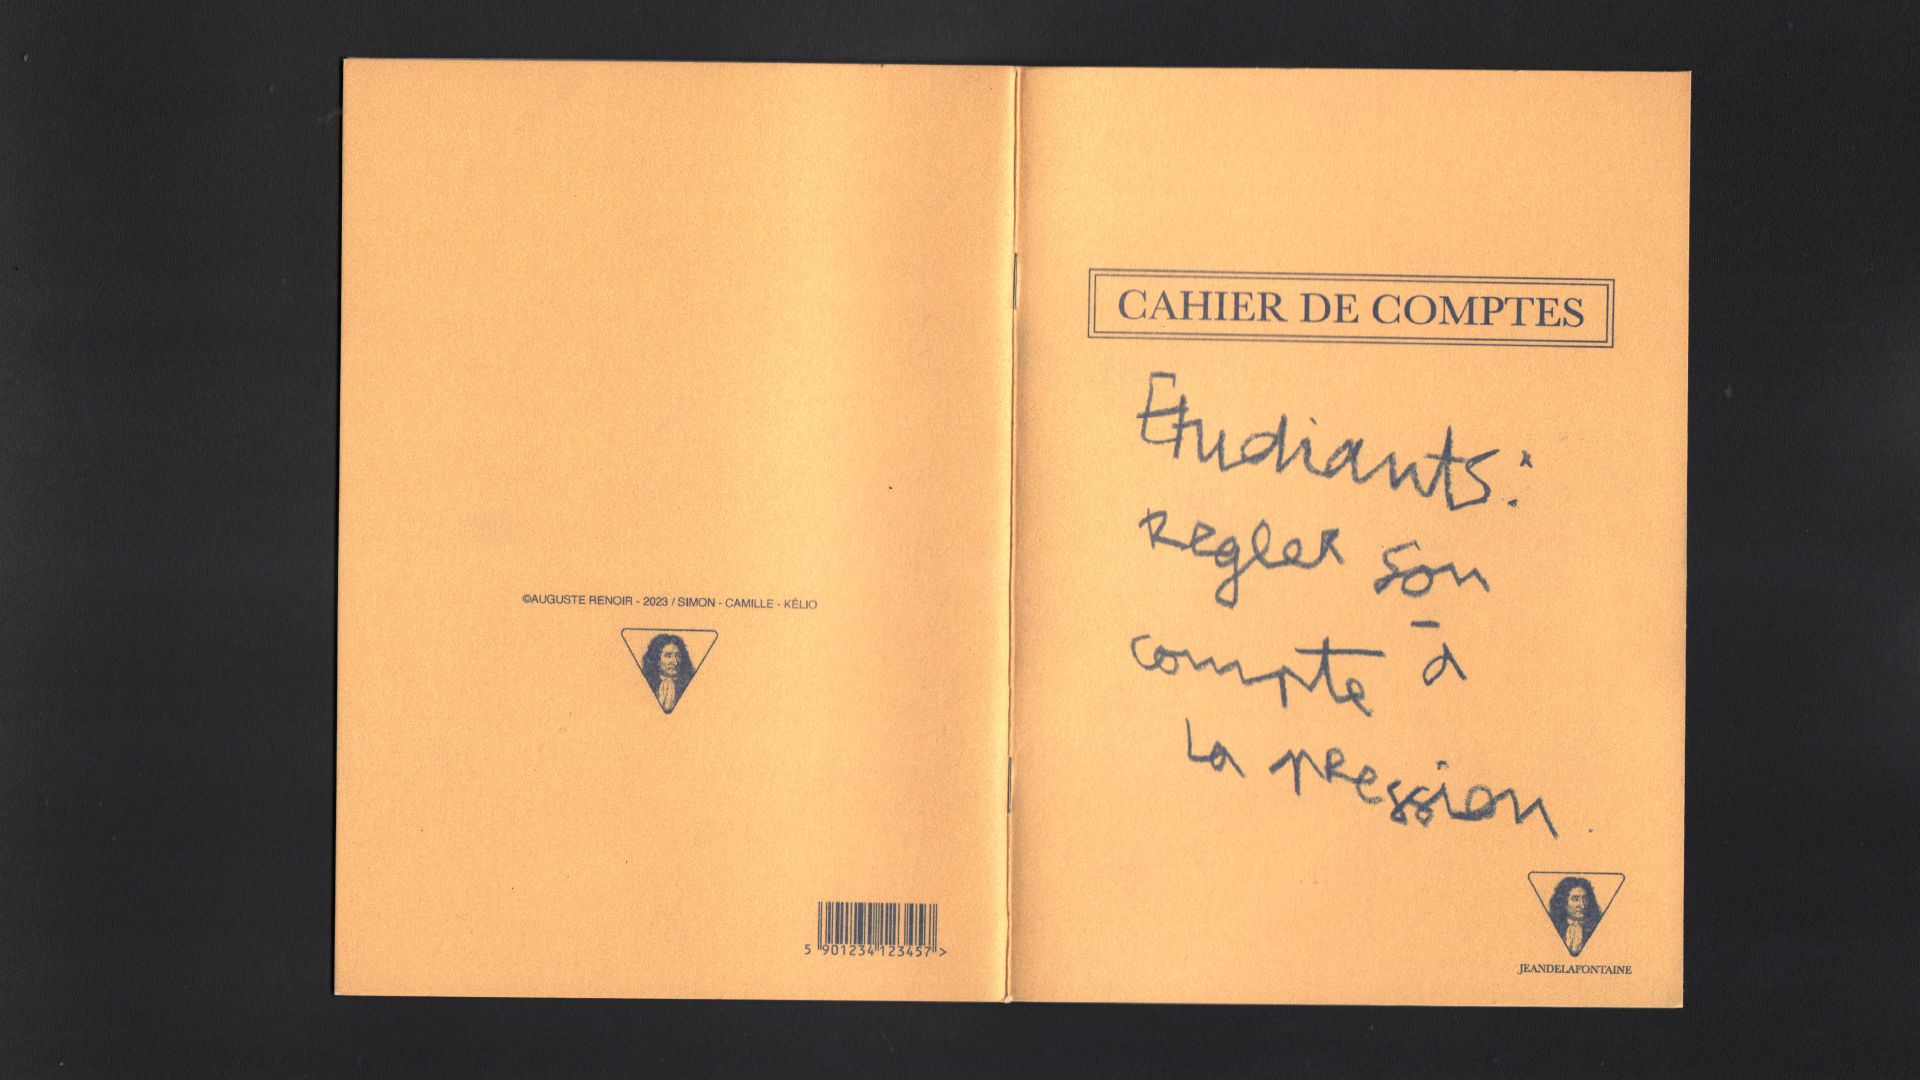 ©AUGUSTE RENOIR - 2023 / SIMON - CAMILLE - KÉLIO
5 901234 123457 >
CAHIER DE COMPTES
Etudiants:
Regler son
compte à
la pression.
JEANDELAFONTAINE